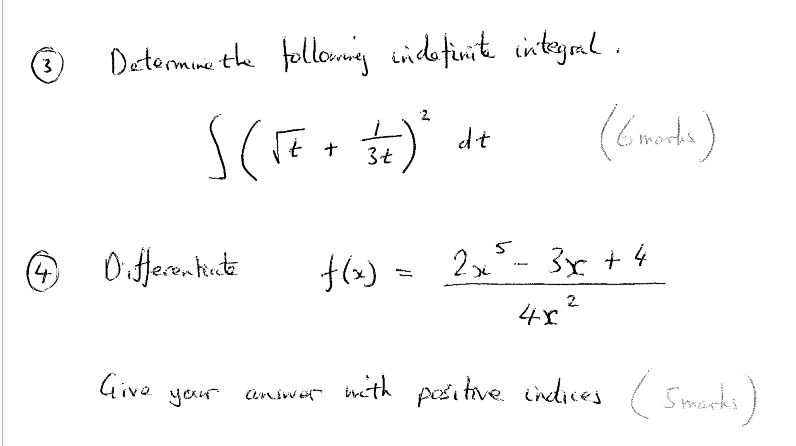 ③ Determine the following indefinite integral.
∫ ( √t + 1/3t )² dt (6 marks)
④ Differentiate f(x) = (2x⁵ - 3x + 4)/(4x²)
Give your answer with positive indices (5 marks)